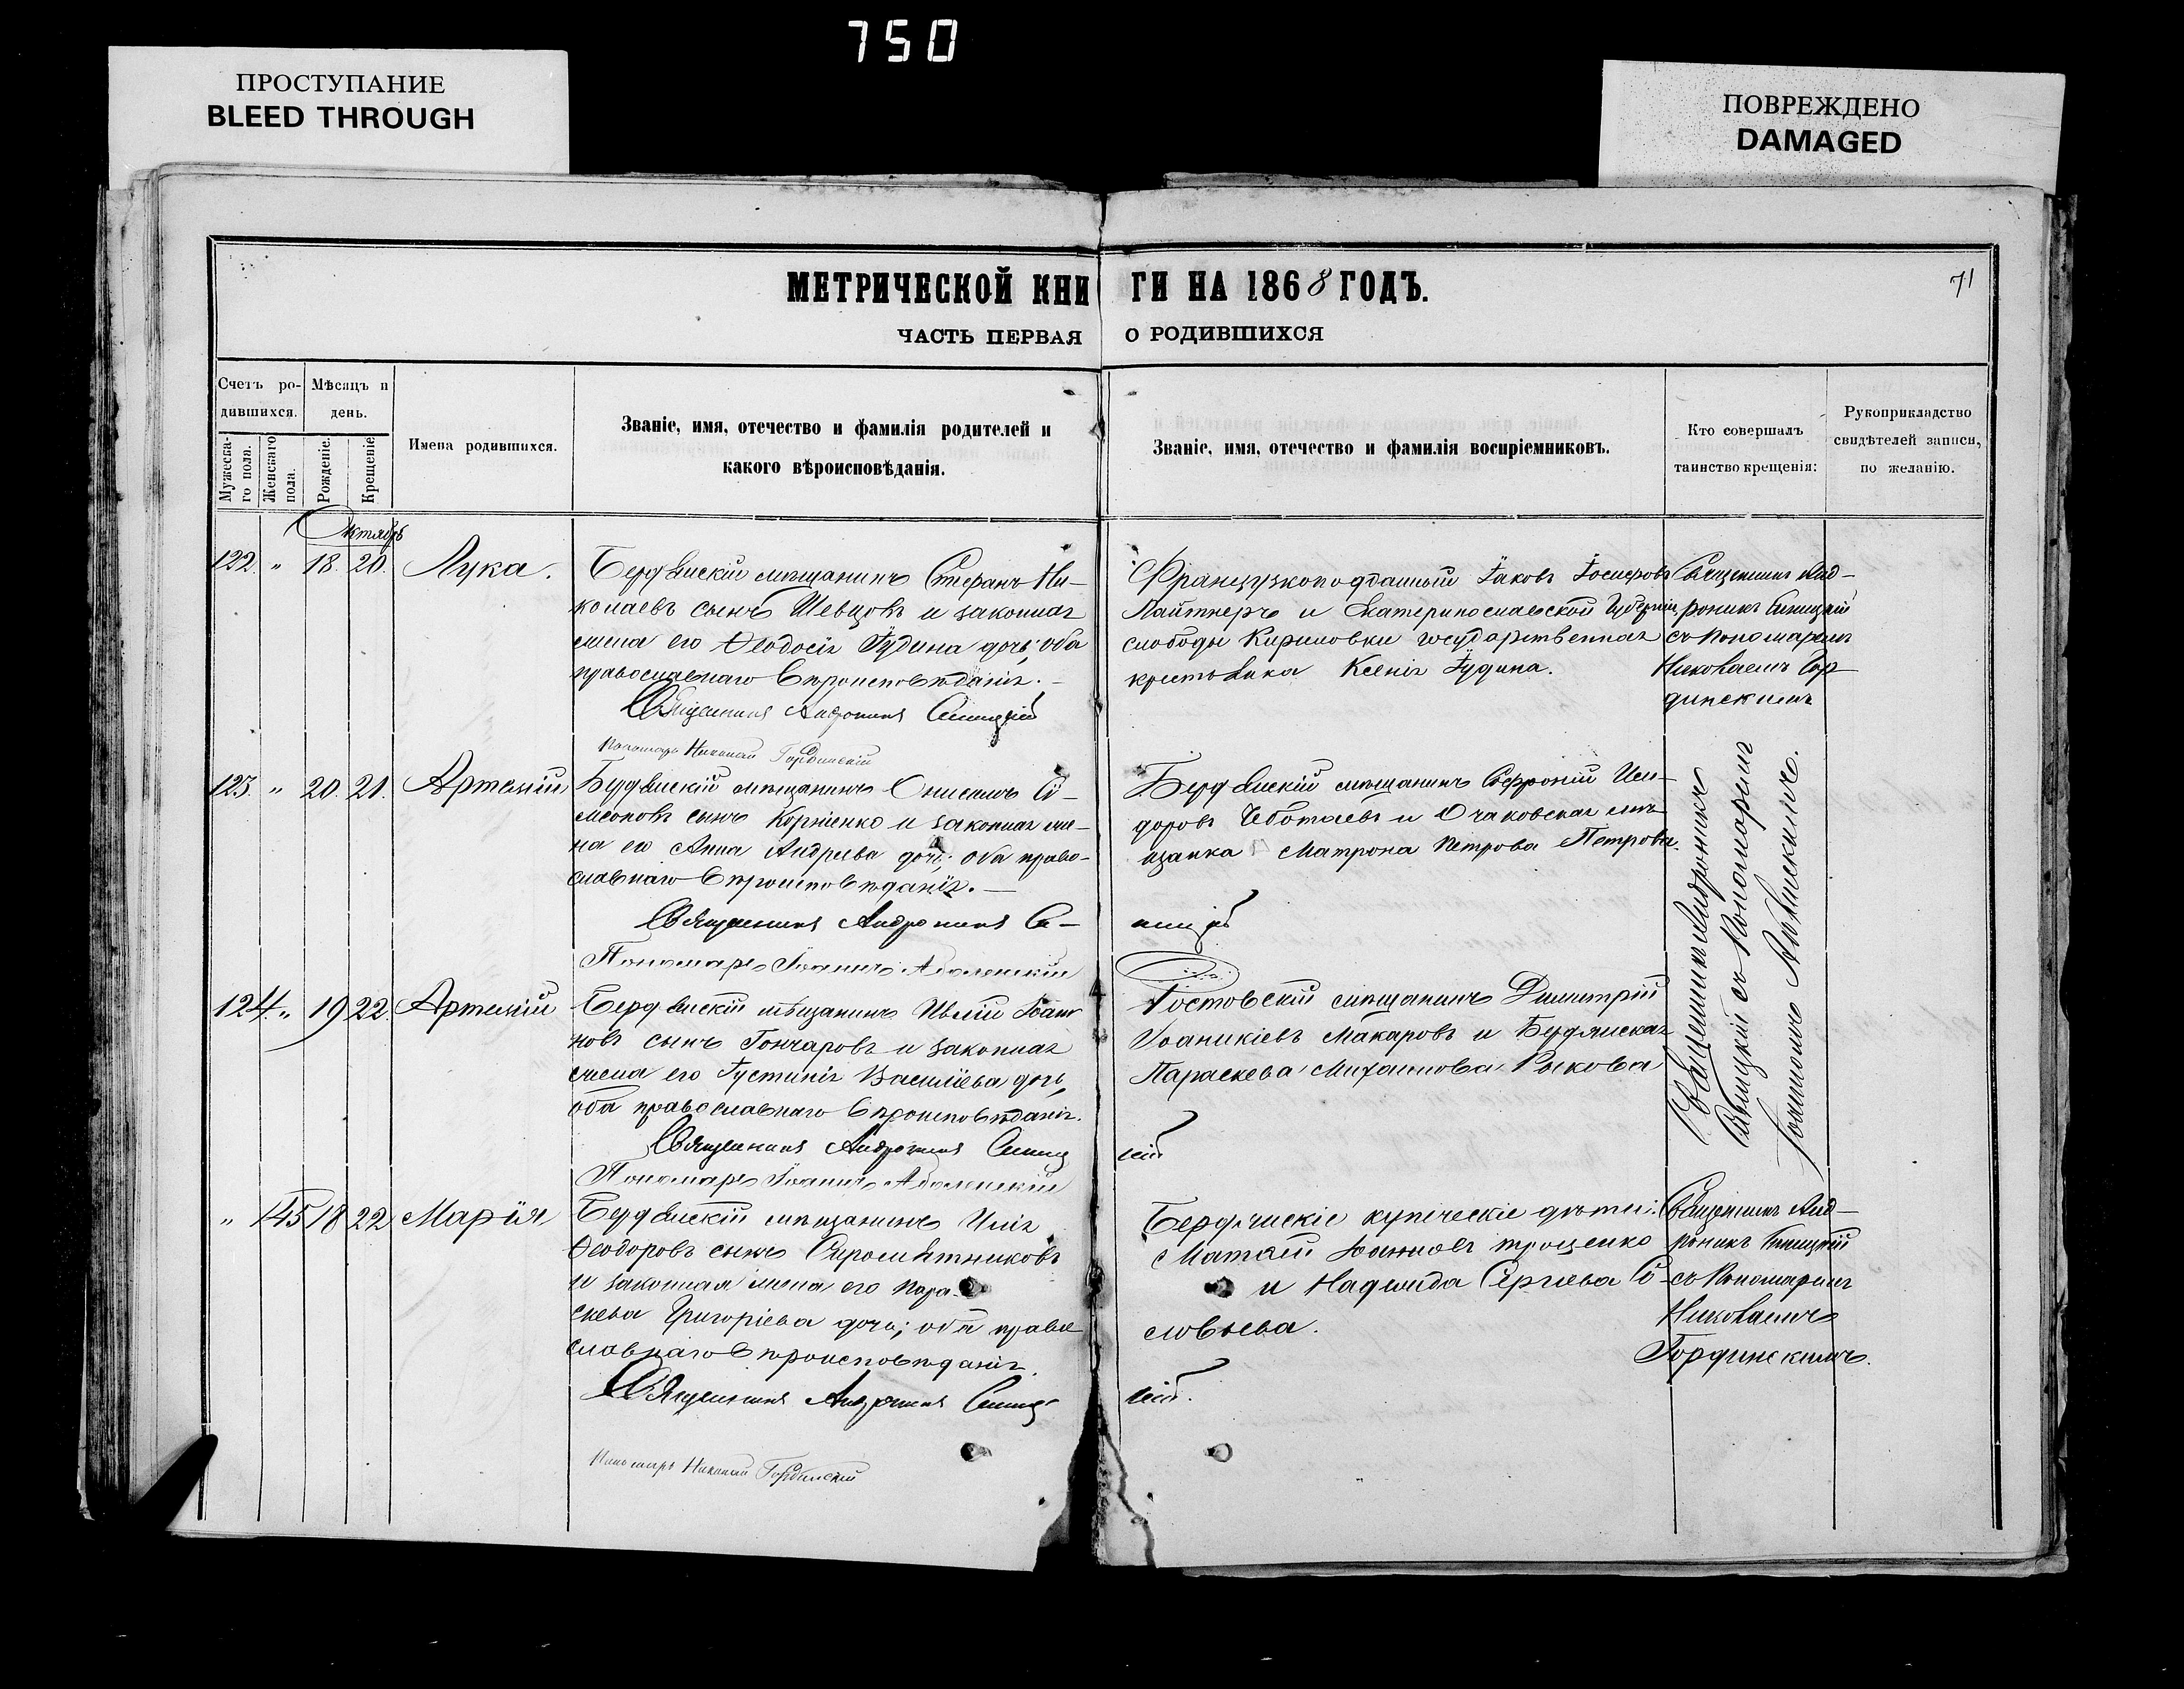 750
ПРОСТУПАНИЕ
BLEED THROUGH
ПОВРЕЖДЕНО
DAMAGED
МЕТРИЧЕСКОЙ КНИГИ НА 1868 ГОДЪ.
71
ЧАСТЬ ПЕРВАЯ О РОДИВШИХСЯ
Счетъ ро-
дившихся.
Мужеска-
го пола.
Женскаго
пола.
Мѣсяцъ и
день.
Рожденіе.
Крещеніе
Имена родившихся.
Званіе, имя, отечество и фамилія родителей и
какого вѣроисповѣданія.
Званіе, имя, отечество и фамилія воспріемниковъ.
Кто совершалъ
таинство крещенія:
Рукоприкладство
свидѣтелей записи,
по желанію.
Октябрь
122. " 18. 20. Лука.
Бердянскій мѣщанинъ Стефанъ Ни-
колаевъ сынъ Шевцовъ и законная
жена его Ѳеодосія Іудина дочь; оба
православнаго вѣроисповѣданія.
Священникъ Андроникъ Синицкій
Пономарь Николай Гординскій
Французкоподданный Іаковъ Іосифовъ
Лайтнеръ и Екатеринославской Губерніи,
слободы Кириловки государственная
крестьянка Ксенія Іудина.
Священникъ Анд-
роникъ Синицкій
съ Пономаремъ
Николаемъ Гор-
динскимъ
123. " 20. 21. Артемій
Бердянскій мѣщанинъ Онисимъ Си-
меоновъ сынъ Корніенко и законная же-
на его Анна Андреева дочь; оба право-
славнаго вѣроисповѣданія.
Священникъ Андроникъ Си-
ницкій
Пономарь Іоаннъ
Бердянскій мѣщанинъ Софроній Иси-
доровъ Чеботаевъ и Очаковская мѣ-
щанка Матрона Петрова Петрова.
Священникъ Андроникъ
Синицкій съ Пономаремъ
Іоанномъ
124. " 19 22. Артемій
Бердянскій мѣщанинъ Іоан-
новъ сынъ Гончаровъ и законная
жена его Іустинія Васильева дочь,
оба православнаго вѣроисповѣданія.
Священникъ Андроникъ Синиц
кій
Пономарь Іоаннъ
Ростовскій мѣщанинъ Димитрій
Іоаникіевъ Макаровъ и Бердянская
Параскева Михаилова Рыкова
" 145 18 22 Марія
Бердянскій мѣщанинъ Илія
Ѳеодоровъ сынъ Сыромятниковъ
и законная жена его Пара-
скева Григоріева дочь; оба право
славнаго вѣроисповѣданія
Священникъ Андроникъ Синиц-
кій.
Пономарь Николай Гординскій
Бердянскіе купеческіе дѣти:
Матѳей Іоанновъ Троценко
и Надежда Сергіева Со-
ловьева.
Священникъ Анд-
роникъ Синицкій
съ Пономаремъ
Николаемъ
Гординскимъ.